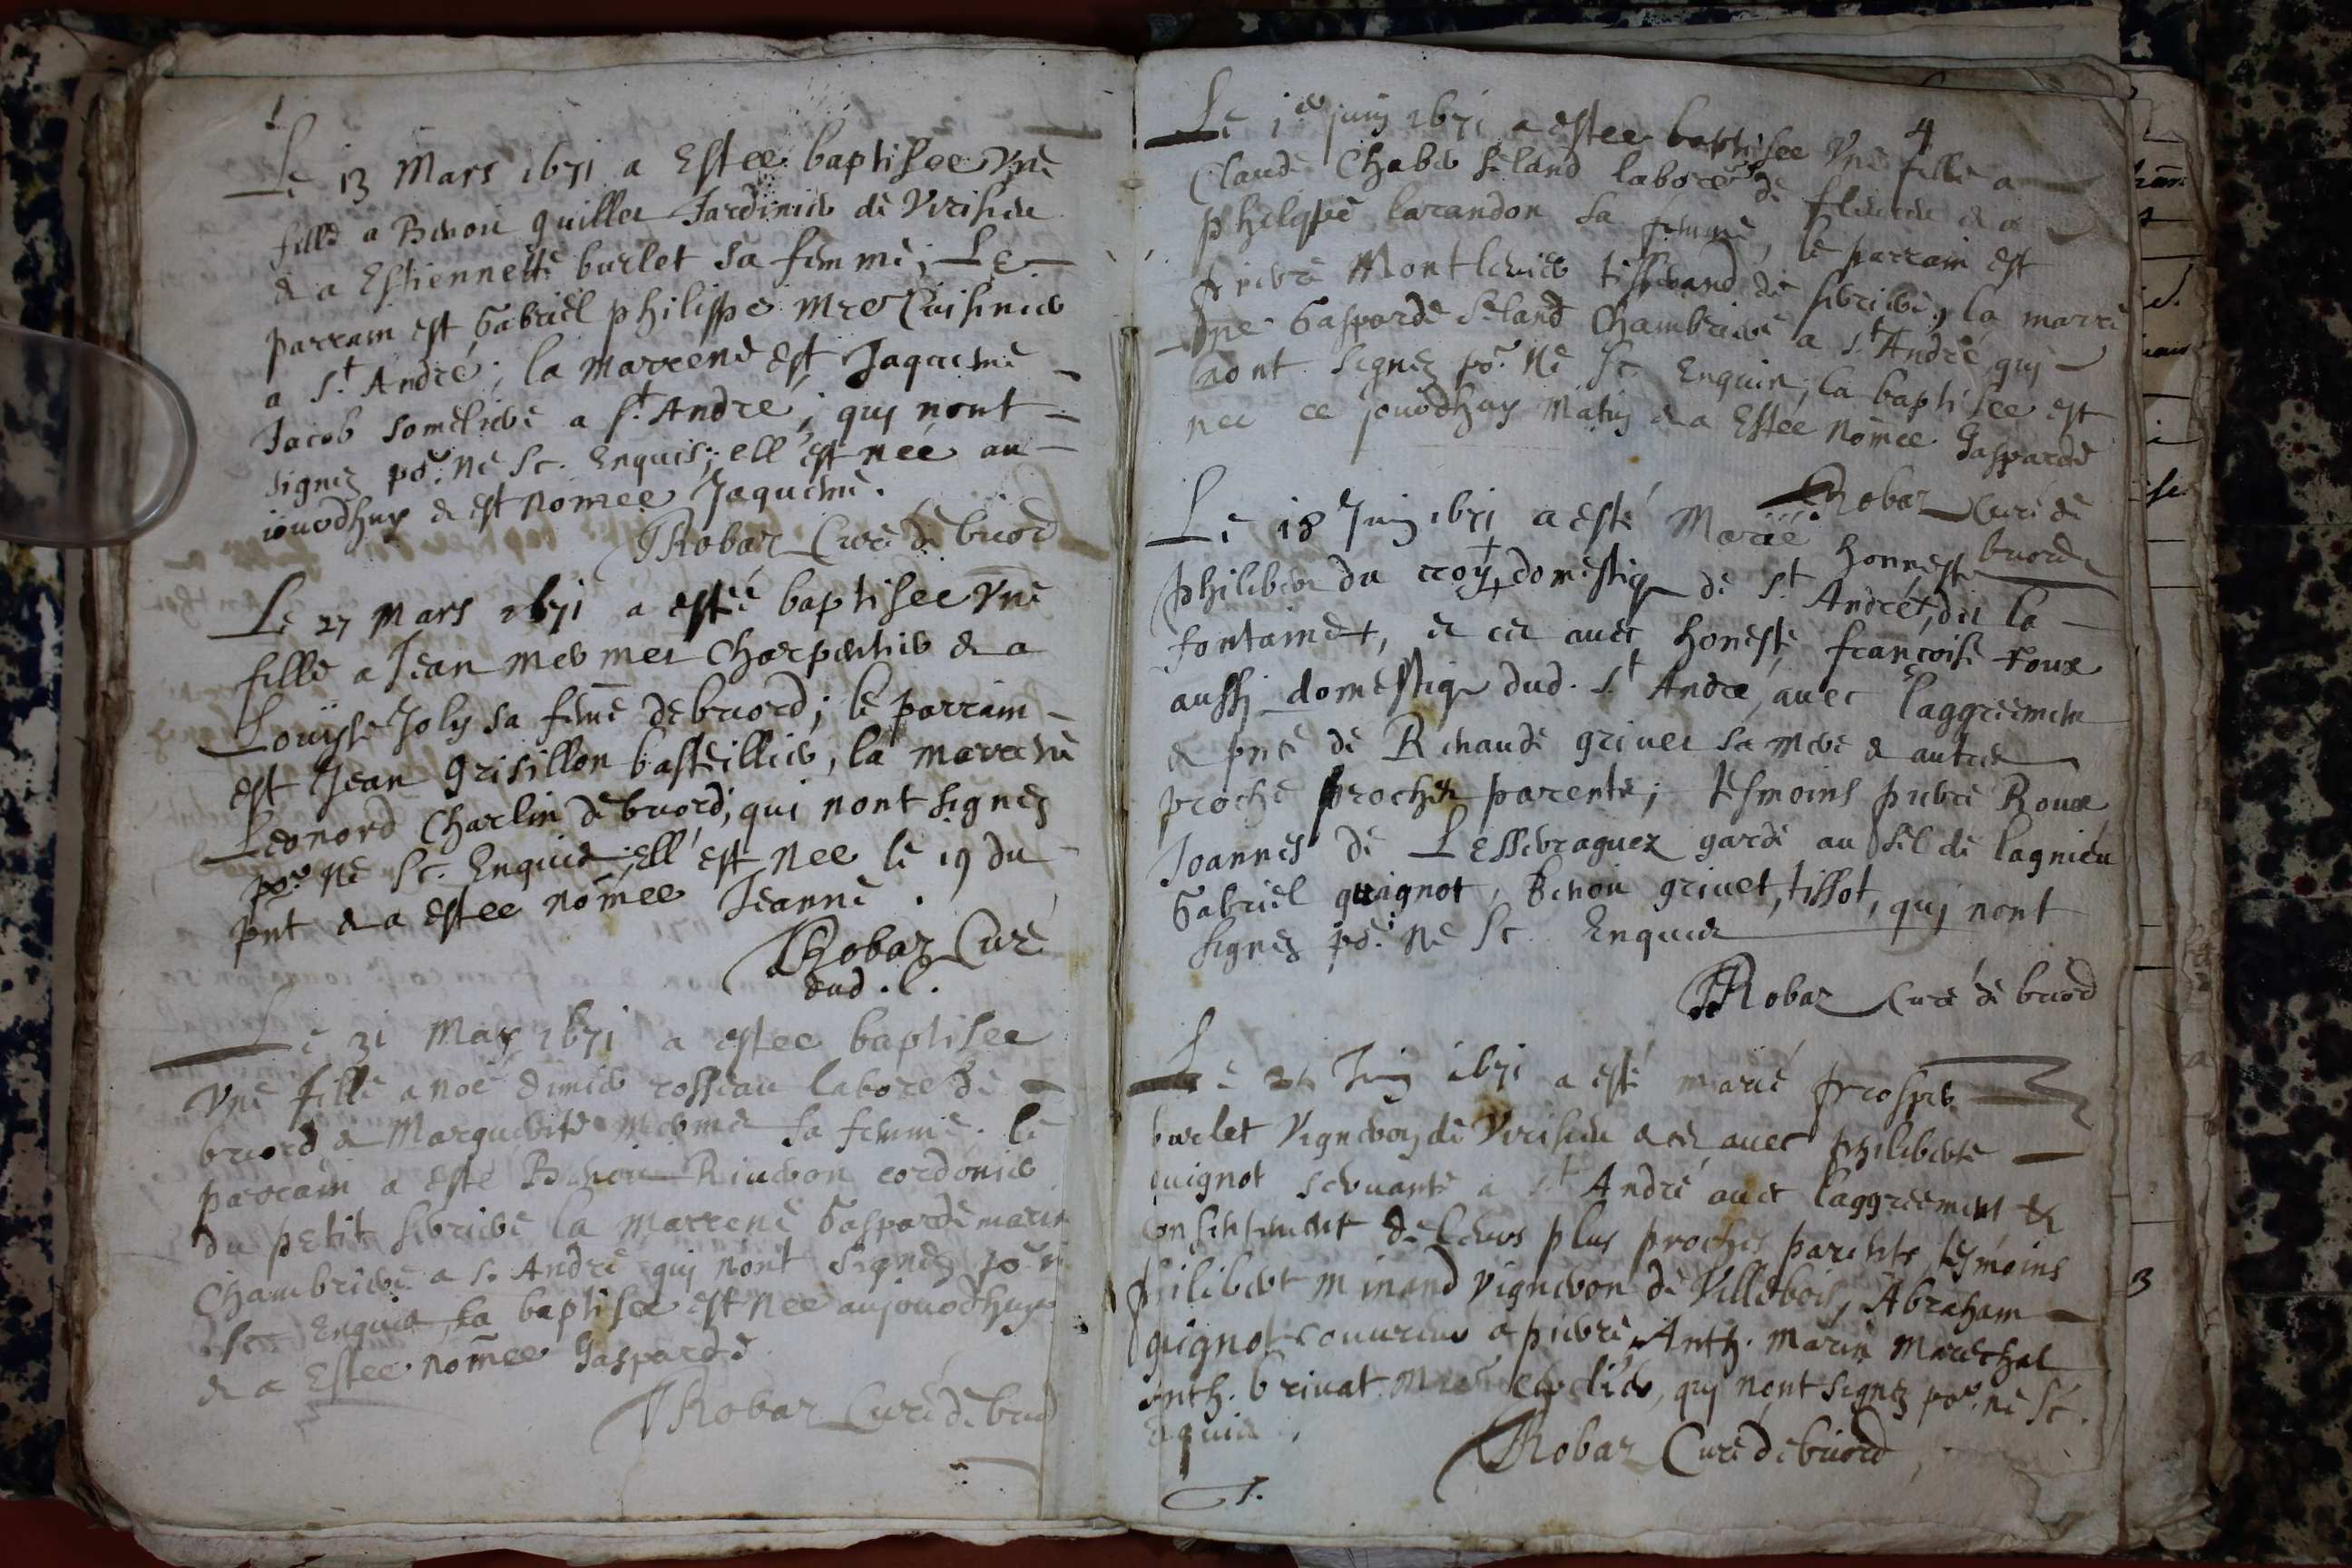 Le 13 Mars 1671 a Estee baptisee Vne
fille a Benoit quillet Jardinier de Virisieu
& a Estiennette burlet sa femme, Le
parrain est Gabriel philippe Mre Cuisinier
a St. André; la marrene est Jaqueme
Jacob someliere a St. André; quy nont
signez por. ne Sc. Enquis; ell'est née au-
iourdhuy & est nomee Jaqueme.
Robar Curé de briord
Le 27 Mars 1671 a esteé baptisee Vne
fille a Jean mermet Charpentier & a
Louyse Joly sa feme de briord; le parrain
est Jean Grisillon basteillier, la marrene
Leonord Charlin de briord; qui nont signez
por. ne Sc. Enquis; ell'est nee le 19 du
pnt & a estee nomee Jeanne.
Robar Curé
dud. l.
Le 31 May 1671 a estee baptisee
Vne fille a noé rosseau labore de
briord & Marguerite merme sa femme. le
parrain a esté Benoit Riueron cordonier
du petit serriere la marrene Gasparde marin
Chambriere a S. André quy nont signez por n
Sc Enquis, la baptisee est nee aujourdhuy
& a Estee nomee Gasparde
Robar Curé de briord
4
Le 1er juin 1671 a estee baptisee Vne fille a
Claude Chaber labore de flurieu & a
philippe larandon sa femme, le parrain est
pierre Montlenier tisserand de serriere, la marre
dne Gasparde Chambriere a St André quy
nont signez por. Ne Sc Enquis; la baptisee est
nee ce jourdhuy matin & a Estée nomee Gasparde
Robar Curé de
briord
Le 18 Juin 1671 a esté Marié honneste
philibert du croy, domestiq de St André, dit la
fontaine, & cet avec honeste françoise roux
aussi domestiq dud. St André, avec l'aggreement
& pnce de Renaude griuet sa mere & autres
proche proches parents; tesmoins pierre Roux
Joannes de Lesserraguez garde au sel de lagnieu
Gabriel guignot, Benoit griuet, tissot, quj nont
signez por. Ne Sc Enquis
Robar Curé de briord
Le 21 Juin 1671 a esté marié prosper
burlet Vigneron de Virisieu & cet avec philiberte
guignot seruante a St André avec l'aggreement &
consentement de leurs plus proches parents, tesmoins
philibert minand Vigneron de Villebois, Abraham
guignot couureur a pierre, Anth. Marin Marechal
Anth. briuat Mre, quj nont signez por. ne Sc.
Equis.
Robar Curé de briord